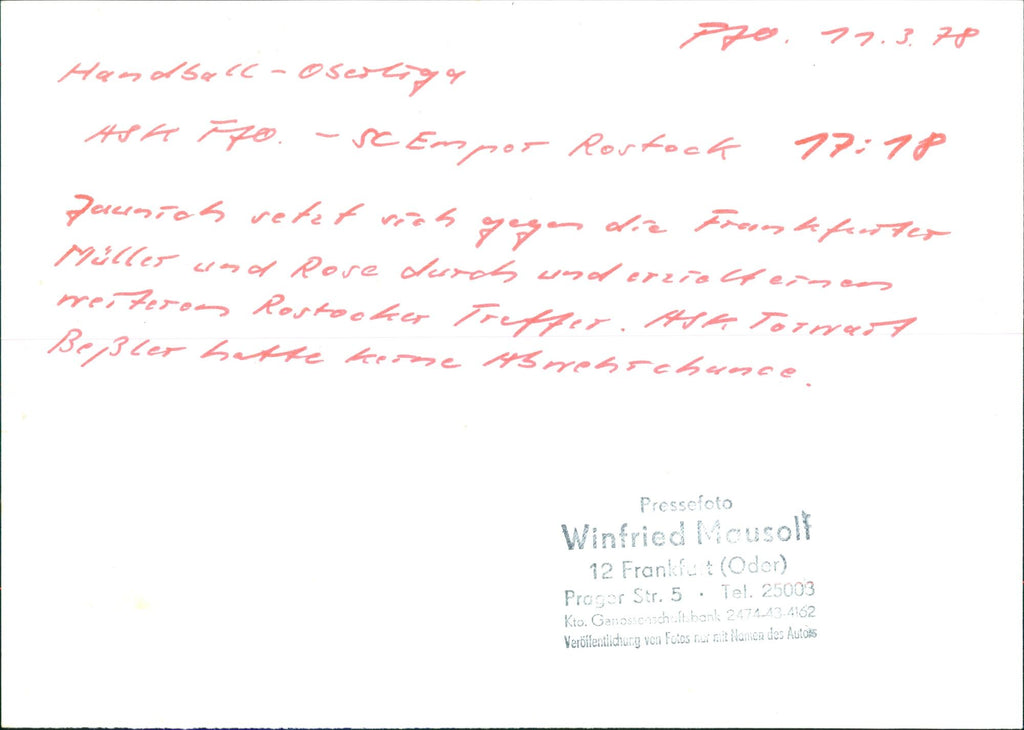 FfO. 11.3.78
Handball - Oberliga
ASK FfO. - SC Empor Rostock 17:18
Jaunich setzt sich gegen die Frankfurter
Müller und Rose durch und erzielt einen
weiteren Rostocker Treffer. ASK Torwart
Beßler hatte keine Abwehrchance.
Pressefoto
Winfried Mausolf
12 Frankfurt (Oder)
Prager Str. 5 · Tel. 25003
Kto. Genossenschaftsbank 2474-43-4162
Veröffentlichung von Fotos nur mit Namen des Autors